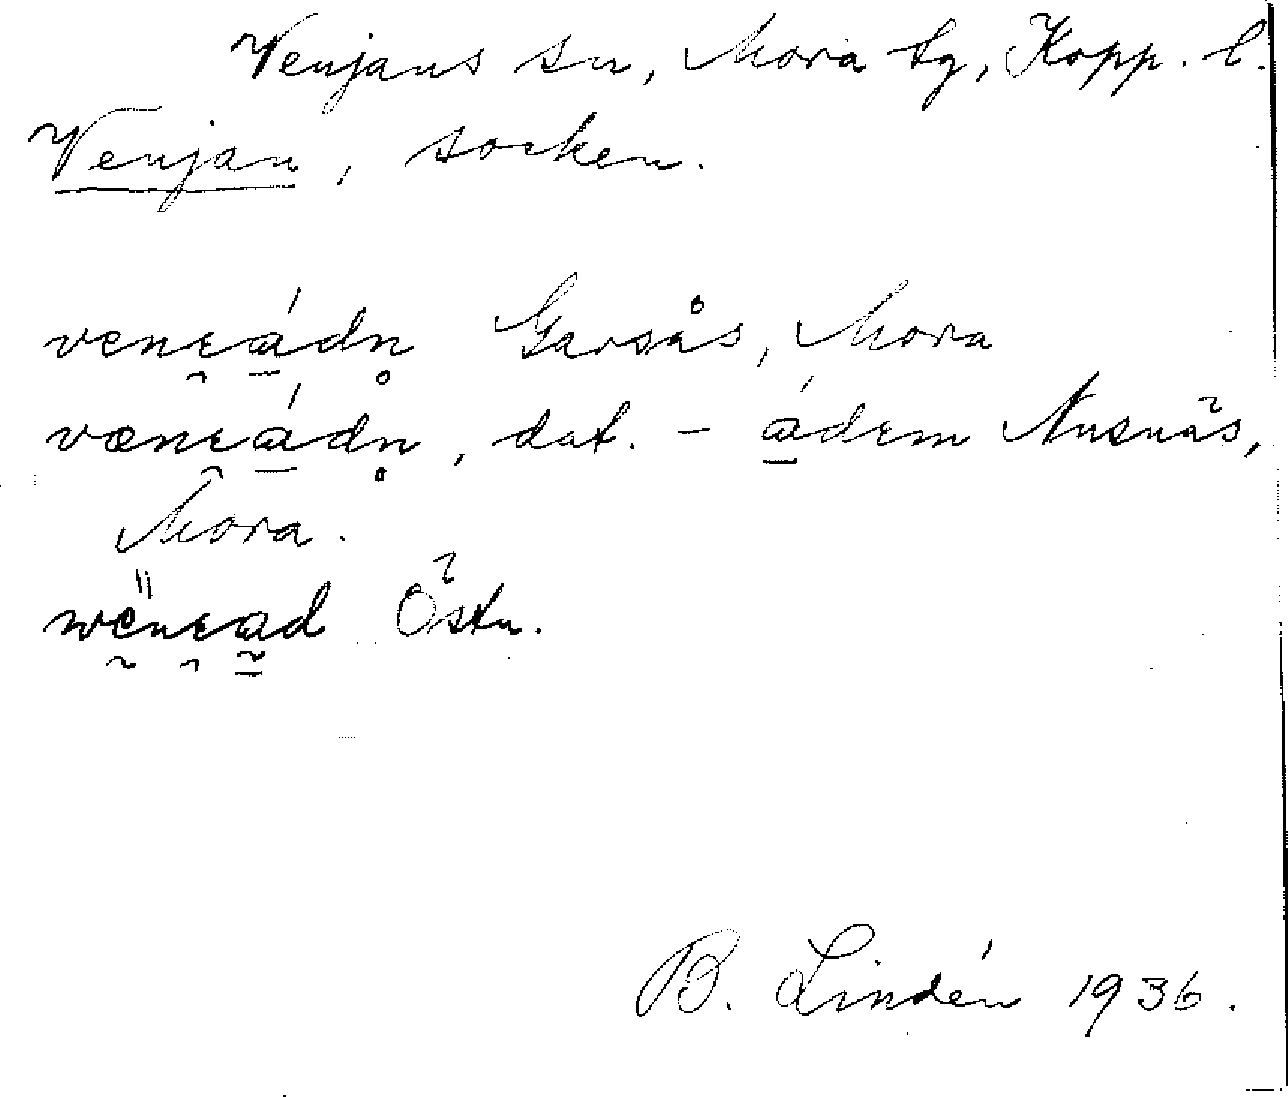 Venjans sn, Mora tg, Kopp. l.
Venjan, socken.
venɛ̯á̱dn̥ Garsås, Mora
vænɛ̯á̱dn̥, dat. - á̱dɛm Nusnäs,
Mora.
wënɛa̱d Östn.
B. Lindén 1936.